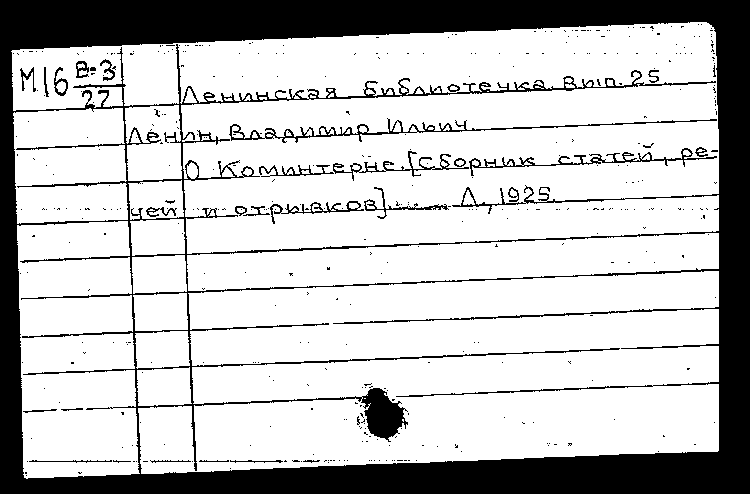 М16 В-3/27
Ленинская библиотечка. Вып. 25
Ленин, Владимир Ильич.
О Коминтерне. [Сборник статей, ре-
чей и отрывков]. Л., 1925.